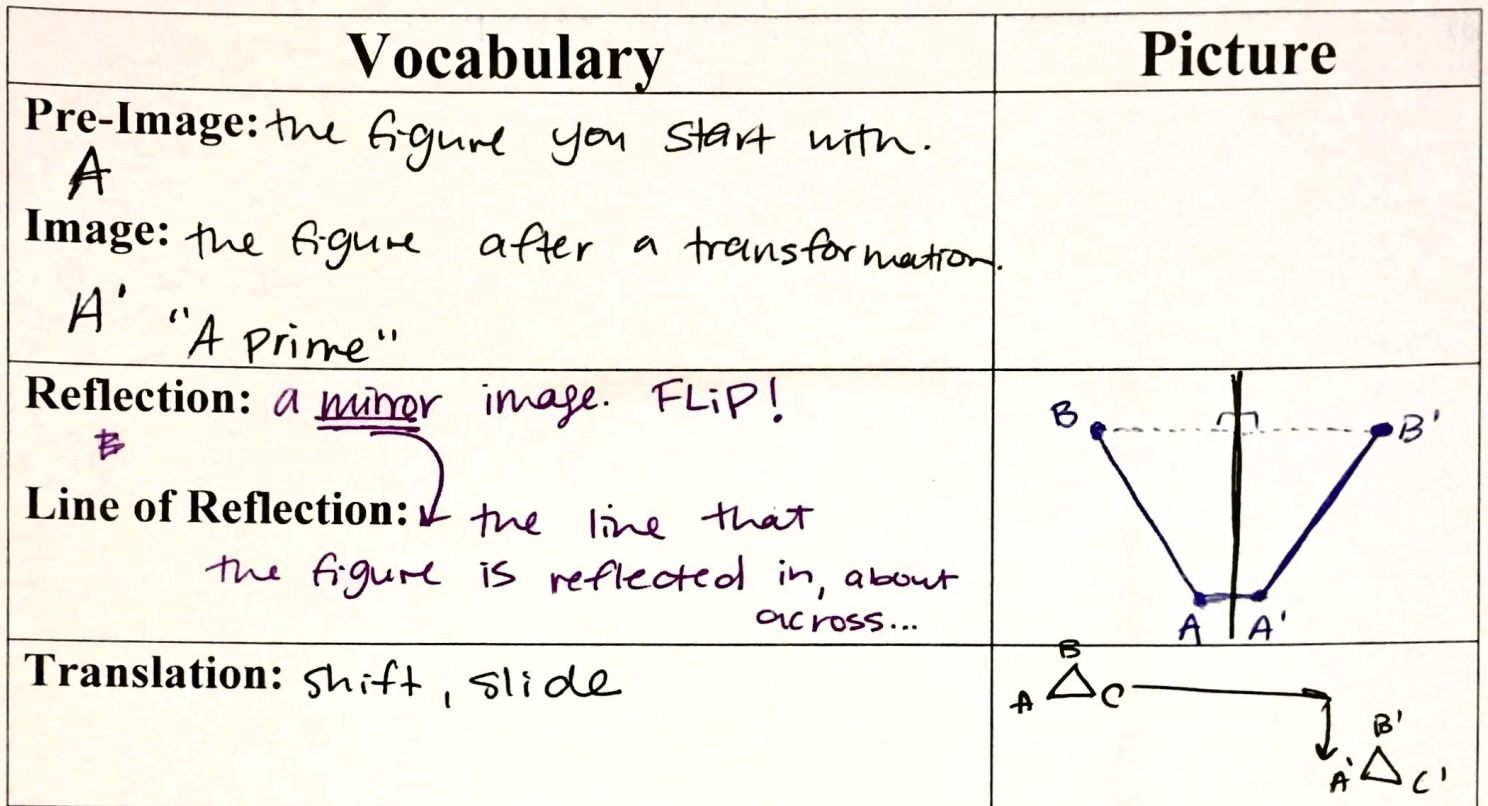 Vocabulary
Picture
Pre-Image: the figure you start with.
A
Image: the figure after a transformation.
A' "A prime"
Reflection: a mirror image. FLiP!
B
Line of Reflection: the line that
the figure is reflected in, about
across...
B B'
A A'
Translation: shift, slide
B
A C
B'
A' C'